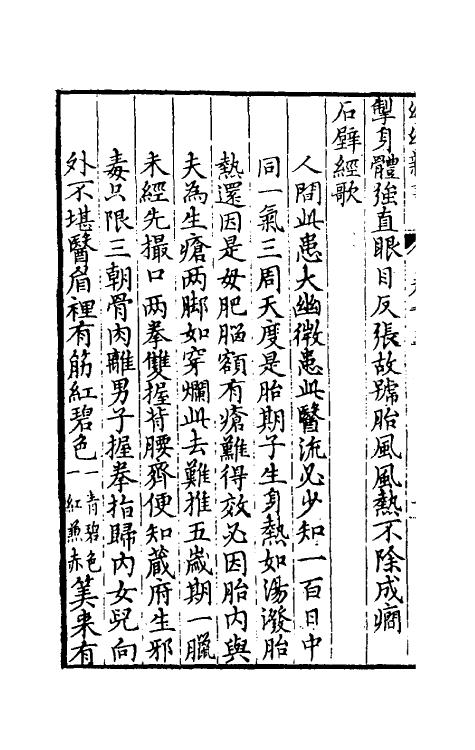 掣身體強直眼目反張故號胎風風熱不除成癇
石壁經歌
人間此患大幽微患此醫流必少知一百日中
同一氣三周天度是胎期子生身熱如湯潑胎
熱還因是母肥腦額有瘡難得效必因胎內與
夫為生瘡两脚如穿爛此去難推五歲期一臘
未經先撮口两拳雙握背腰齊便知蔵府生邪
毒只限三朝骨肉離男子握拳指歸內女兒向
外不堪醫眉裡有筋紅碧色一青碧色一紅兼赤筭來有